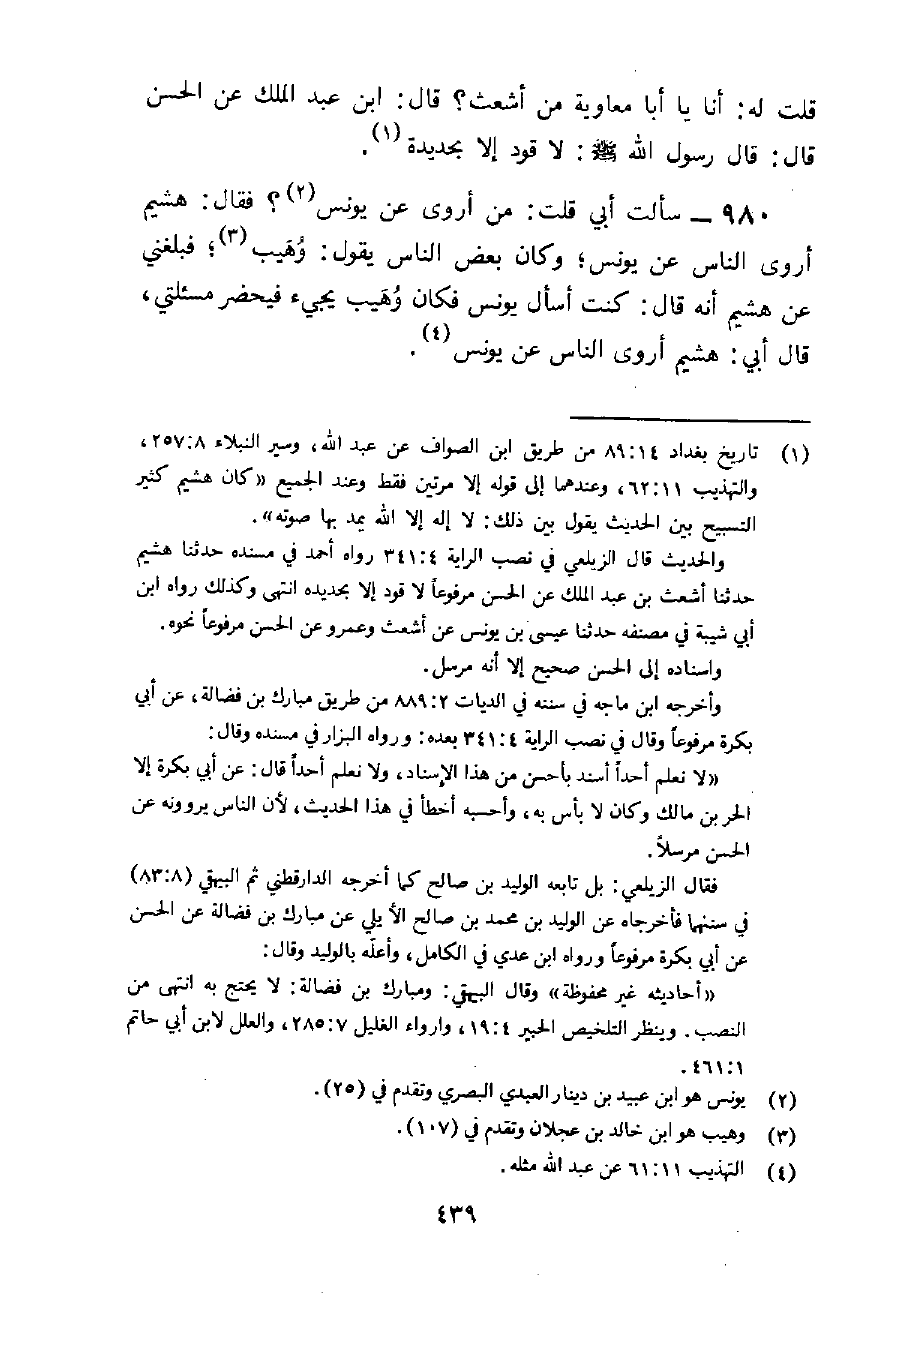 قلت له: أنا يا أبا معاوية من أشعث؟ قال: ابن عبد الملك عن الحسن
قال: قال رسول الله ﷺ: لا قود إلا بحديدة (١).
٩٨٠ ـ سألت أبي قلت: من أروى عن يونس (٢)؟ فقال: هشيم
أروى الناس عن يونس؛ وكان بعض الناس يقول: وُهَيب (٣)؛ فبلغني
عن هشيم أنه قال: كنت أسأل يونس فكان وُهَيب يجيء فيحضر مسئلتي،
قال أبي: هشيم أروى الناس عن يونس (٤).
(١) تاريخ بغداد ٨٩:١٤ من طريق ابن الصواف عن عبد الله، وسير النبلاء ٢٥٧:٨،
والتهذيب ٦٢:١١، وعندهما إلى قوله إلا مرتين فقط وعند الجميع «كان هشيم كثير
التسبيح بين الحديث يقول بين ذلك: لا إله إلا الله يمد بها صوته».
والحديث قال الزيلعي في نصب الراية ٣٤١:٤ رواه أحمد في مسنده حدثنا هشيم
حدثنا أشعث بن عبد الملك عن الحسن مرفوعاً لا قود إلا بحديده انتهى وكذلك رواه ابن
أبي شيبة في مصنفه حدثنا عيسى بن يونس عن أشعث وعمرو عن الحسن مرفوعاً نحوه.
واسناده إلى الحسن صحيح إلا أنه مرسل.
وأخرجه ابن ماجه في سننه في الديات ٨٨٩:٢ من طريق مبارك بن فضالة، عن أبي
بكرة مرفوعاً وقال في نصب الراية ٣٤١:٤ بعده: ورواه البزار في مسنده وقال:
«لا نعلم أحداً أسند بأحسن من هذا الإسناد، ولا نعلم أحداً قال: عن أبي بكرة إلا
الحر بن مالك وكان لا بأس به، وأحسبه أخطأ في هذا الحديث، لأن الناس يروونه عن
الحسن مرسلاً.
فقال الزيلعي: بل تابعه الوليد بن صالح كما أخرجه الدارقطني ثم البيهقي (٨٣:٨)
في سننها فأخرجاه عن الوليد بن محمد بن صالح الأيلي عن مبارك بن فضالة عن الحسن
عن أبي بكرة مرفوعاً ورواه ابن عدي في الكامل، وأعلّه بالوليد وقال:
«أحاديثه غير محفوظة» وقال البيهقي: ومبارك بن فضالة: لا يحتج به انتهى من
النصب. وينظر التلخيص الحبير ١٩:٤، وارواء الغليل ٢٨٥:٧، والعلل لابن أبي حاتم
٤٦١:١.
(٢) يونس هو ابن عبيد بن دينار العبدي البصري وتقدم في (٢٥).
(٣) وهيب هو ابن خالد بن عجلان وتقدم في (١٠٧).
(٤) التهذيب ٦١:١١ عن عبد الله مثله.
٤٣٩